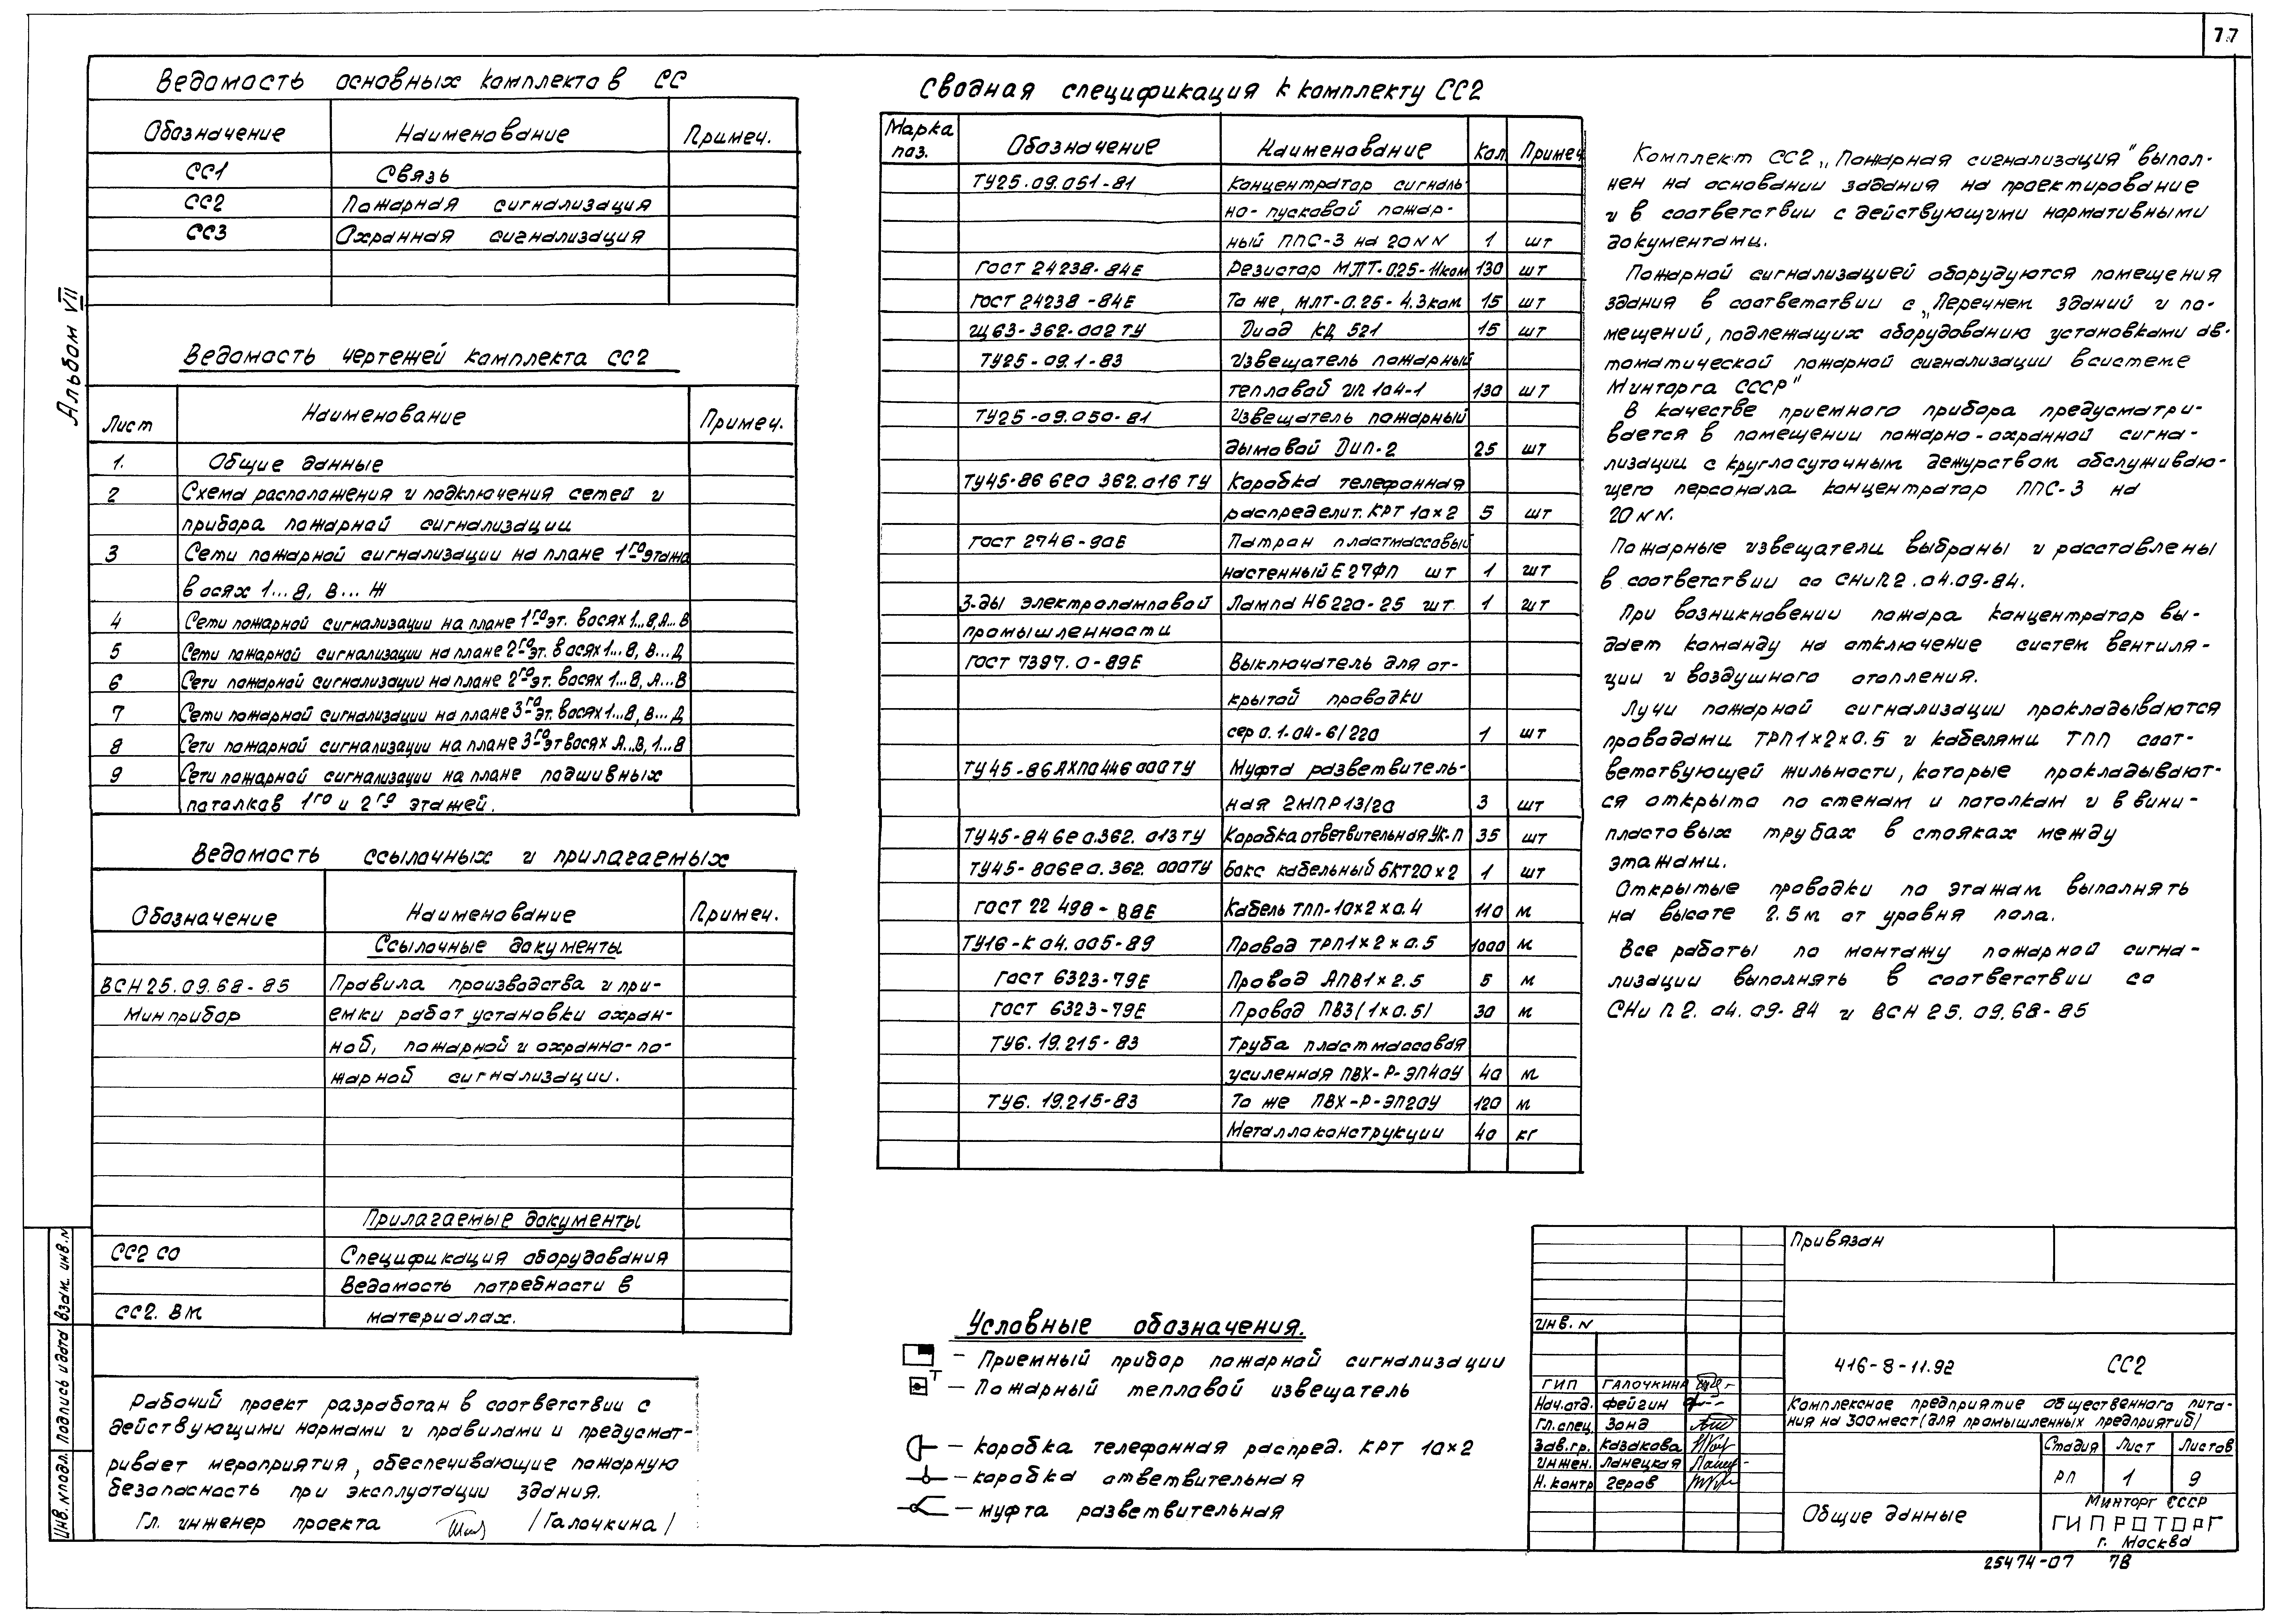 77
Альбом VII
Ведомость основных комплектов СС
Обозначение Наименование Примеч.
СС1 Связь
СС2 Пожарная сигнализация
СС3 Охранная сигнализация
Ведомость чертежей комплекта СС2
Лист Наименование Примеч.
1. Общие данные
2 Схема расположения и подключения сетей и
прибора пожарной сигнализации
3 Сети пожарной сигнализации на плане 1го этажа
в осях 1...8, В...Ж
4 Сети пожарной сигнализации на плане 1го эт. в осях 1...8, А...В
5 Сети пожарной сигнализации на плане 2го эт. в осях 1...8, В...Д
6 Сети пожарной сигнализации на плане 2го эт. в осях 1...8, А...В
7 Сети пожарной сигнализации на плане 3го эт. в осях 1...8, В...Д
8 Сети пожарной сигнализации на плане 3го эт в осях А...В, 1...8
9 Сети пожарной сигнализации на плане подшивных
потолков 1го и 2го этажей.
Ведомость ссылочных и прилагаемых
Обозначение Наименование Примеч.
Ссылочные документы
ВСН25.09.68-85 Правила производства и при-
Минприбор емки работ установки охран-
ной, пожарной и охранно-по-
жарной сигнализации.
Прилагаемые документы
СС2 СО Спецификация оборудования
Ведомость потребности в
СС2. ВМ материалах.
Рабочий проект разработан в соответствии с
действующими нормами и правилами и предусмат-
ривает мероприятия, обеспечивающие пожарную
безопасность при эксплуатации здания.
Гл. инженер проекта /Галочкина/
Инв. N подл. Подпись и дата Взам. инв. N
Сводная спецификация к комплекту СС2
Марка поз. Обозначение Наименование Кол Примеч
ТУ25.09.051-81 Концентратор сигналь-
но-пусковой пожар-
ный ППС-3 на 20NN 1 шт
ГОСТ 24238-84Е Резистор МЛТ-0.25-11ком 130 шт
ГОСТ 24238-84Е То же, МЛТ-0.25-4.3ком 15 шт
Щ63-362-002 ТУ Диод КД 521 15 шт
ТУ25-09.1-83 Извещатель пожарный
тепловой ИП 104-1 130 шт
ТУ25-09.050-81 Извещатель пожарный
дымовой ДИП-2 25 шт
ТУ45-86 6е0 362.016 ТУ Коробка телефонная
распределит. КРТ 10×2 5 шт
ГОСТ 2746-90Е Патрон пластмассовый
настенный Е27ФП шт 1 шт
З-ды электроламповой Лампа НБ220-25 шт. 1 шт
промышленности
ГОСТ 7397.0-89Е Выключатель для от-
крытой проводки
сер 0.1-04-6/220 1 шт
ТУ45-86ЯХП0446000ТУ Муфта разветвитель-
ная 2МПР13/20 3 шт
ТУ45-84 6е0.362.013ТУ Коробка ответвительная УК-П 35 шт
ТУ45-806е0.362.000ТУ Бокс кабельный БКТ20×2 1 шт
ГОСТ 22 498-88Е Кабель ТПП-10×2×0.4 110 м
ТУ16-К04.005-89 Провод ТРП1×2×0.5 1000 м
ГОСТ 6323-79Е Провод АПВ1×2.5 5 м
ГОСТ 6323-79Е Провод ПВ3(1×0.5) 30 м
ТУ6.19.215-83 Труба пластмассовая
усиленная ПВХ-Р-ЭП40У 40 м
ТУ6.19.215-83 То же ПВХ-Р-ЭП20У 120 м
Металлоконструкции 40 кг
Условные обозначения.
– Приемный прибор пожарной сигнализации
– Пожарный тепловой извещатель
– коробка телефонная распред. КРТ 10×2
– коробка ответвительная
– муфта разветвительная
Комплект СС2 „Пожарная сигнализация" выпол-
нен на основании задания на проектирование
и в соответствии с действующими нормативными
документами.
Пожарной сигнализацией оборудуются помещения
здания в соответствии с „Перечнем зданий и по-
мещений, подлежащих оборудованию установками ав-
томатической пожарной сигнализации в системе
Минторга СССР"
В качестве приемного прибора предусматри-
вается в помещении пожарно-охранной сигна-
лизации с круглосуточным дежурством обслуживаю-
щего персонала концентратор ППС-3 на
20 NN.
Пожарные извещатели выбраны и расставлены
в соответствии со СНиП2.04.09-84.
При возникновении пожара концентратор вы-
дает команду на отключение систем вентиля-
ции и воздушного отопления.
Лучи пожарной сигнализации прокладываются
проводами ТРП1×2×0.5 и кабелями ТПП соот-
ветствующей жильности, которые прокладывают-
ся открыто по стенам и потолкам и в вини-
пластовых трубах в стояках между
этажами.
Открытые проводки по этажам выполнять
на высоте 2.5м от уровня пола.
Все работы по монтажу пожарной сигна-
лизации выполнять в соответствии со
СНиП 2.04.09-84 и ВСН 25.09.68-85
Привязан
Инв. N
416-8-11.92 СС2
ГИП Галочкина
Нач.отд. Фейгин
Гл.спец. Зонд
Зав.гр. Казакова
Инжен. Ланецкая
Н.контр Геров
Комплексное предприятие общественного пита-
ния на 300 мест (для промышленных предприятий)
Стадия Лист Листов
РП 1 9
Общие данные
Минторг СССР
ГИПРОТОРГ
г. Москва
25474-07 78